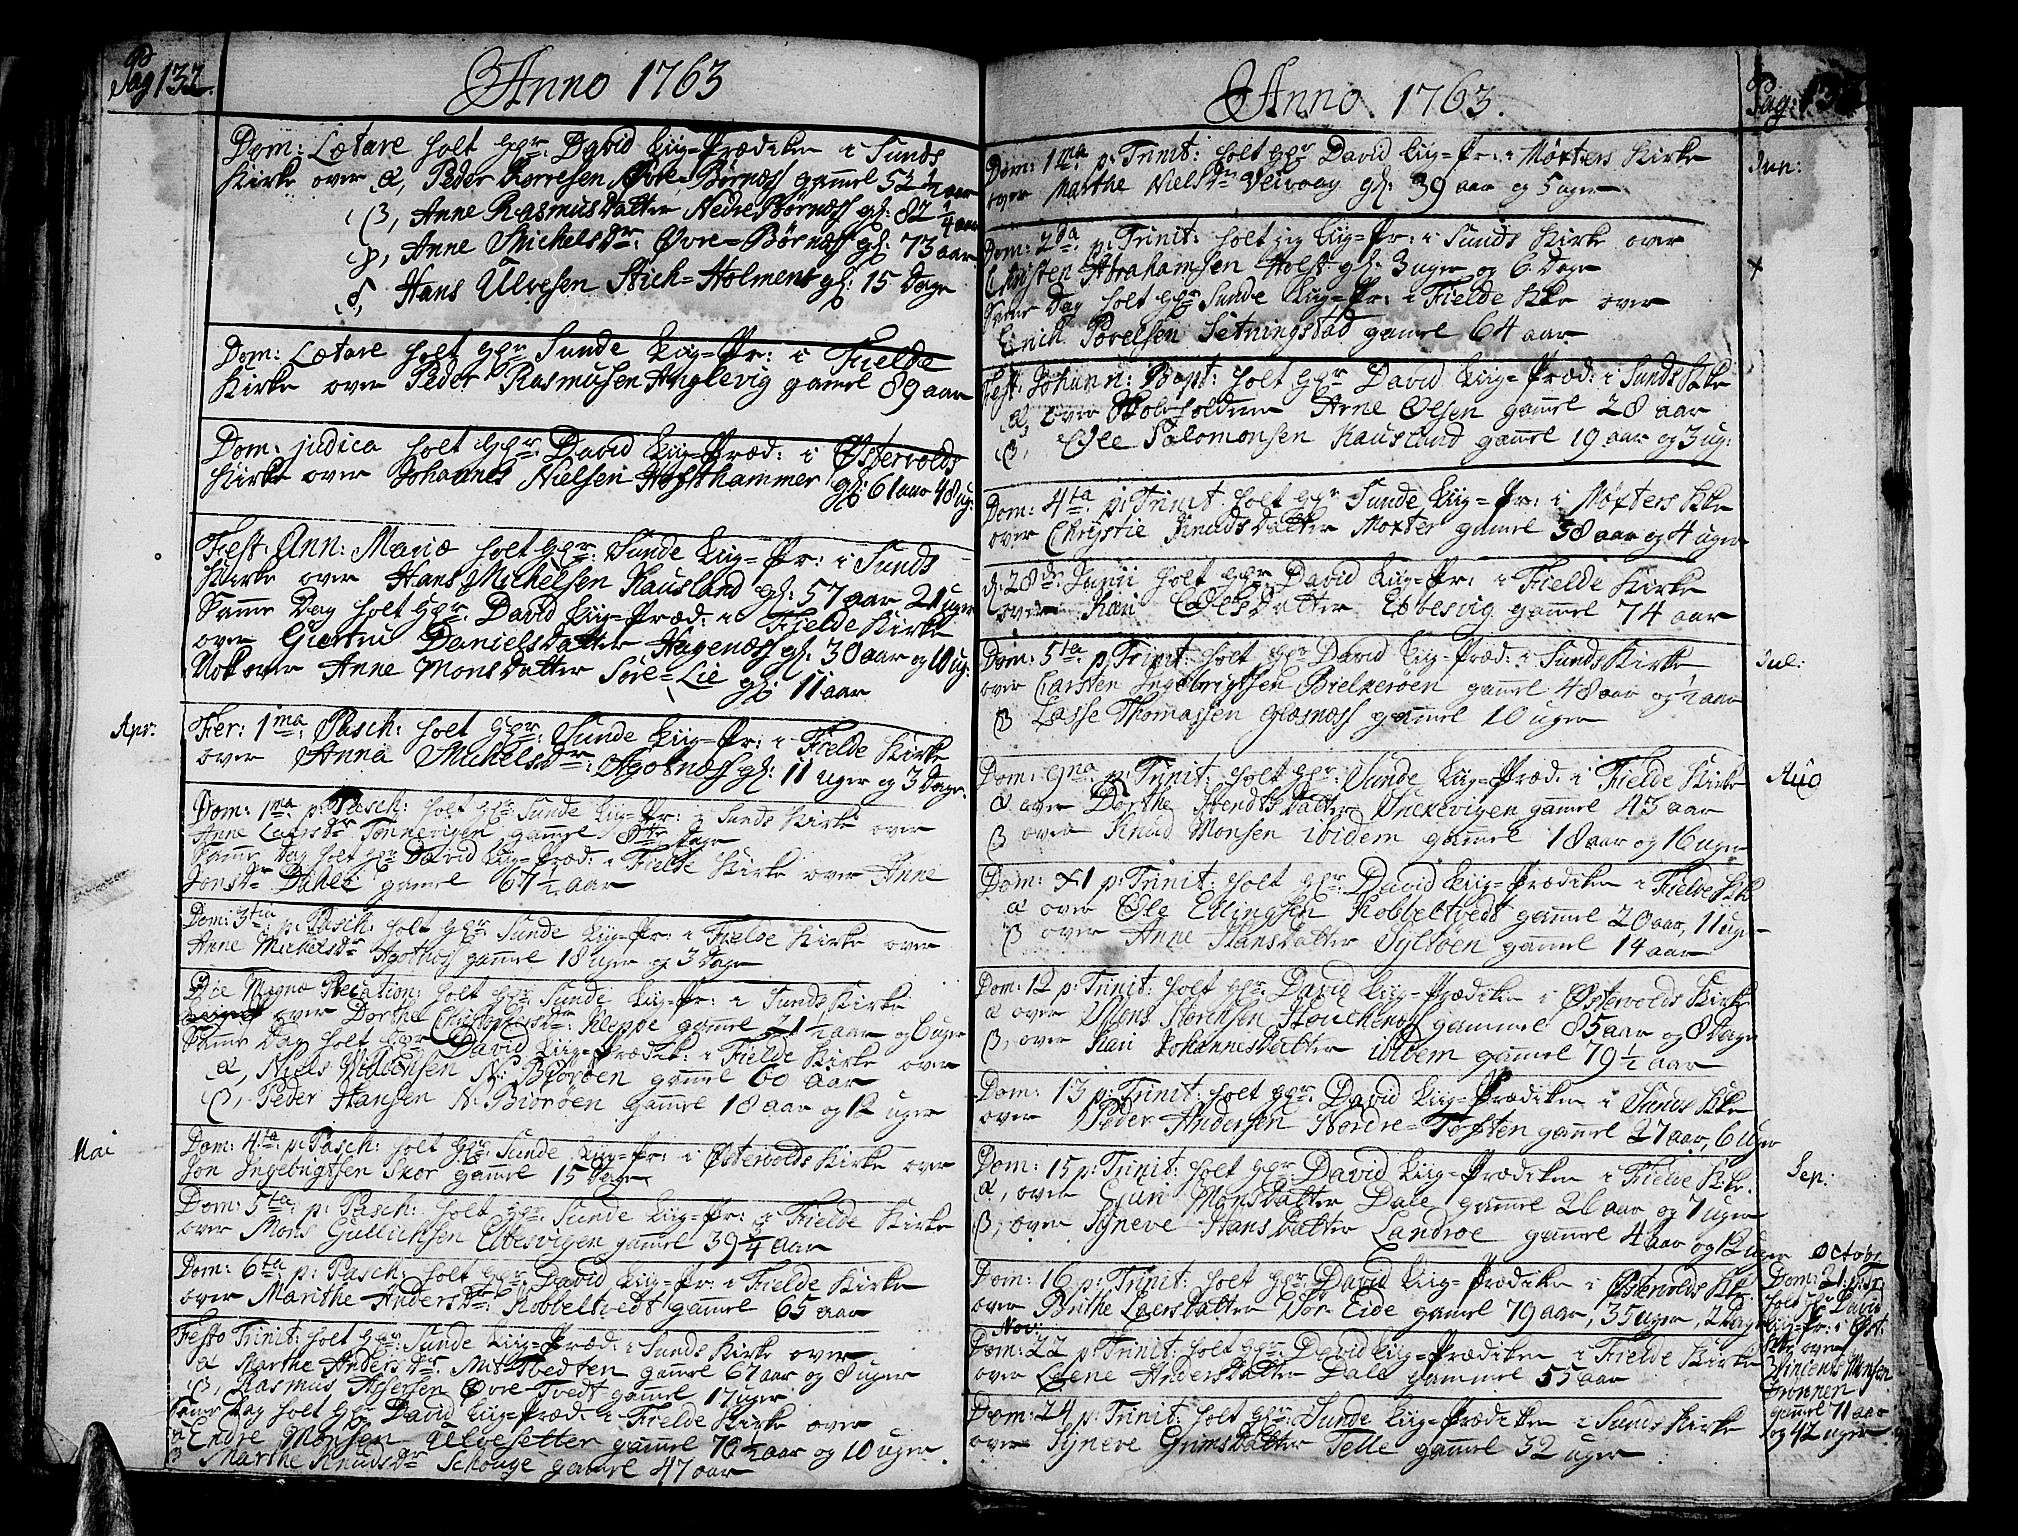 Pag 132.
Anno 1763
Dom: Lætare holt hr: David Liig=Prædiken i Sunds
Kirke over α, Peder Øvre=Børnæss gammel 52 1/2 aar
β, Anne Rasmusdatter Nedre Børnæss gl: 82 1/4 aar
γ, Anne Michelsdr: Øvre=Børnæss gl: 73 aar
δ, Hans Ulvesen Stich=Holmene gl: 15 Dage
Dom: Lætare holt hr: Sunde Liig=Pr: i Fielde
Kirke over Peder Rasmusen Anglevig gamel 89 aar
Dom: judica holt hr: David Liig=Præd: i Østervolds
Kirke over Johannes Nielsen Hofsthammer gl: 61 aar 48 ug:
Fest: Ann: Mariæ holt hr: Sunde Liig=Pr: i Sunds
Kirke over Hans Michelsen Hausland gl: 57 aar 21 uger
Samme Dag holt hr: David Liig=Præd: i Fielde Kirke
over Danielsdatter Hagenæss gl: 30 aar og 10 ug:
Nok over Anne Monsdatter Søre=Lie gl: 11 aar
Apr:
Fer: 1ma: Pasch: holt hr: Sunde Liig=Pr: i Fielde Kirke
over Anna Michelsdr: Agotnæss gl: 11 uger og 3 Dage.
Dom: 1ma: p: Pasch: holt hr Sunde Liig=Pr: i Sunds Kirke over
Anne Larsdr Tønnevigen gammel Dage
Samme Dag holt hr David Liig=Præd: i Fielde Kirke over Anne
Jonsdr gamel 67 1/2 aar
Dom: 3tia: p: Pasch: holt hr: Sunde Liig=Pr: i Fielde Kirke over
Anne Michelsdr Agotnæss gammel 18 uger og 3 Dage
Die Magnæ Precation: holt hr Sunde Liig=Pr: i Sunds Kirke
over Dorthe Christophersdr: Kleppe gamel 21 1/2 aar og 6 uger
Samme Dag holt hr David Liig=Prædik: i Fielde Kirke over
α, Niels N: Biorøen gammel 60 aar
β, Peder Hansen N: Biorøen gammel 18 aar og 12 uger
Mai
Dom: 4ta: p: Pasch: holt hr Sunde Liig=Pr: i Østervolds Kirke over
Jon Ingebrigtsen Skor gammel 15 Dage
Dom: 5ta: p: Pasch: holt hr: Sunde Liig=Pr: i Fielde Kirke
over Mons Gullichsen Ebbesvigen gammel 39 1/4 aar
Dom: 6ta: p: Pasch: holt hr: David Liig=Pr: i Fielde Kirke
over Marithe Andersdr: Kobbeltvedt gammel 65 aar
Festo Trinit: holt hr: Sunde Liig=Præd: i Sunds Kirke over
α Marthe Andersdr: Mit=Tvedten gammel 67 aar og 8 uger
β, Rasmus Assersen Øvre=Tvedt gammel 17 uger
Samme Dag holt hr David Liig=Præd: i Fielde Kirke over
α Endre Monsen Ulvesetter gammel 70 1/2 aar og 10 uger.
β Marthe Knudsdr Schouge gammel 47 aar
Anno 1763.
Pag:
Dom: 1ma p: Trinit: holt hr: David Liig=Pr: i Møxters Kirke
over Marthe Nielsdr Veivaag gl: 39 aar og 5 uger
Jun:
Dom: 2da: p: Trinit: holt jeg Liig=Pr: i Sunds Kirke over
Christen Abrahamsen Holst gl: 3 uger og 6 Dage
Samme Dag holt hr Sunde Liig=Pr: i Fielde Kke over
Erich Setningstad gamel 64 aar
Fest: Johann: Bapt: holt hr David Liig=Præd: i Sunds Kke
α, over Skoleholderen Arne Olsen gammel 28 aar
β, Ole Salomonsen Hausland gammel 19 aar og 3 ug:
Dom: 4ta p: Trinit holt hr Sunde Liig=Pr: i Møxters Kke
over Chrystie Knudsdatter Møxter gammel 58 aar og 4 uger
d: 28de: Junii holt hr: David Liig=Pr: i Fielde Kirke
over Kari Olsdatter Ebbesvig gammel 74 aar
Dom: 5ta: p: Trinit: holt hr David Liig=Præd: i Sunds Kirke
over Carsten Ingebrigtsen Bielkerøen gammel 48 aar og 1/2 aar
β Lasse Thomassen Glæsnæss gammel 10 uger
Jul:
Dom: 9na: p: Trinit: holt hr: Sunde Liig=Præd: i Fielde Kirke
α over Dorthe Snekevigen gammel 43 aar
β over Knud Monsen ibidem gammel 18 aar og 16 uger
Aug
Dom: XI p: Trinit: holt hr: David Liig=Prædiken i Fielde Kk
α over Ole Ellingsen Kobbeltvedt gammel 20 aar, 11 uger
β over Anne Hansdatter Syltøen gammel 14 aar
Dom: 12 p: Trinit: holt hr: David Liig=Prædiken i Østervolds Kirke
α over Mons gammel 85 aar og 8 Dage
β, over Kari Johannesdatter ibidem gammel 79 1/2 aar
Dom: 13 p: Trinit: holt hr: David Liig=Prædiken i Sunds Kke
over Peder Andersen Nordre=Toften gammel 27 aar, 6 uger
Dom: 15 p: Trinit: holt hr: David Liig=Prædiken i Fielde Kke.
α, over Guri Monsdatter Dale gammel 26 aar og 7 uger
β, over Synneve Hansdatter Landroe gammel 4 aar og 12 uger
Sep:
Dom: 16 p: Trinit: holt hr: David Liig=Prædiken i Østervolds Kk.
over Brithe Larsdatter Vor=Eide gammel 79 aar, 35 uger, 2 Dage
Nov:
Dom: 22 p: Trinit: holt hr: David Liig=Prædiken i Fielde Kirke
over Lene Andersdatter Dale gammel 55 aar
Dom: 24 p: Trinit: holt hr: Sunde Liig=Prædiken i Sunds Kirke
over Synneve Grimsdatter Telle gammel 32 uger
October
Dom: 21: p: Tr
holt hr David
Liig=Pr: i Øst:
Kke over
Vincents Monsen
Grønnen
gammel 71 aar
og 42 uger